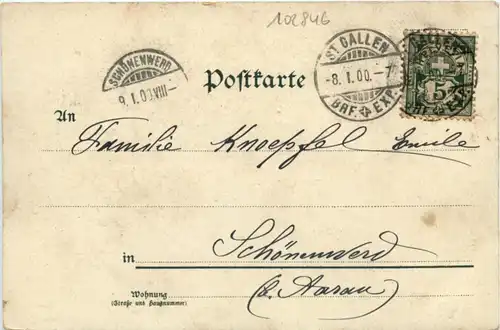 102846
SCHÖNENWERD
9.I.00.VIII–
ST. GALLEN
–8.I.00.–7
BRF. EXP.
5
Postkarte
An
Familie Knoepfel Emile
in Schönenwerd
(b. Aarau)
Wohnung
(Straße und Hausnummer)